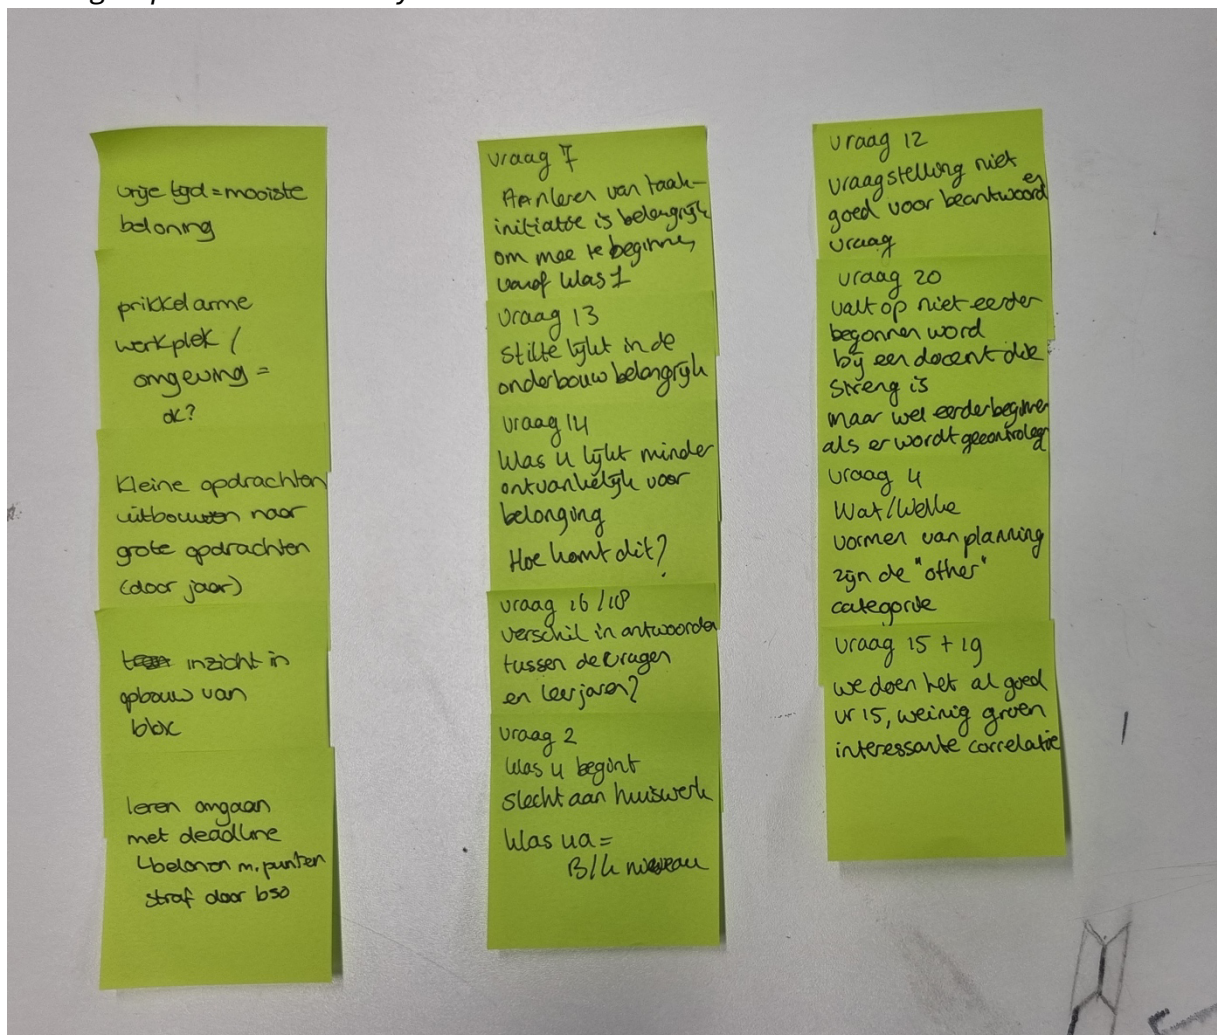 vrije tijd = mooiste
beloning
prikkelarme
werkplek /
omgeving =
ok?
Kleine opdrachten
uitbouwen naar
grote opdrachten
(door jaar)
inzicht in
opbouw van
blok
leren omgaan
met deadline
↳ belonen m. punten
straf door bso
vraag 7
Aanleren van taak-
initiatie is belangrijk
om mee te beginnen,
vanaf klas 1
vraag 13
stilte lijkt in de
onderbouw belangrijk
vraag 14
klas 4 lijkt minder
ontvankelijk voor
belonging
Hoe komt dit?
vraag 16/18
verschil in antwoorden
tussen de vragen
en leerjaren?
vraag 2
klas 4 begint
slecht aan huiswerk
klas 4a =
B/k niveau
vraag 12
vraagstelling niet
goed voor beantwoorden
vraag
vraag 20
valt op niet eerder
begonnen word
bij een docent die
streng is
maar wel eerder beginnen
als er wordt gecontroleerd
vraag 4
Wat/Welke
vormen van planning
zijn de "other"
categorie
vraag 15 + 19
we doen het al goed
vr 15, weinig groen
interessante correlatie